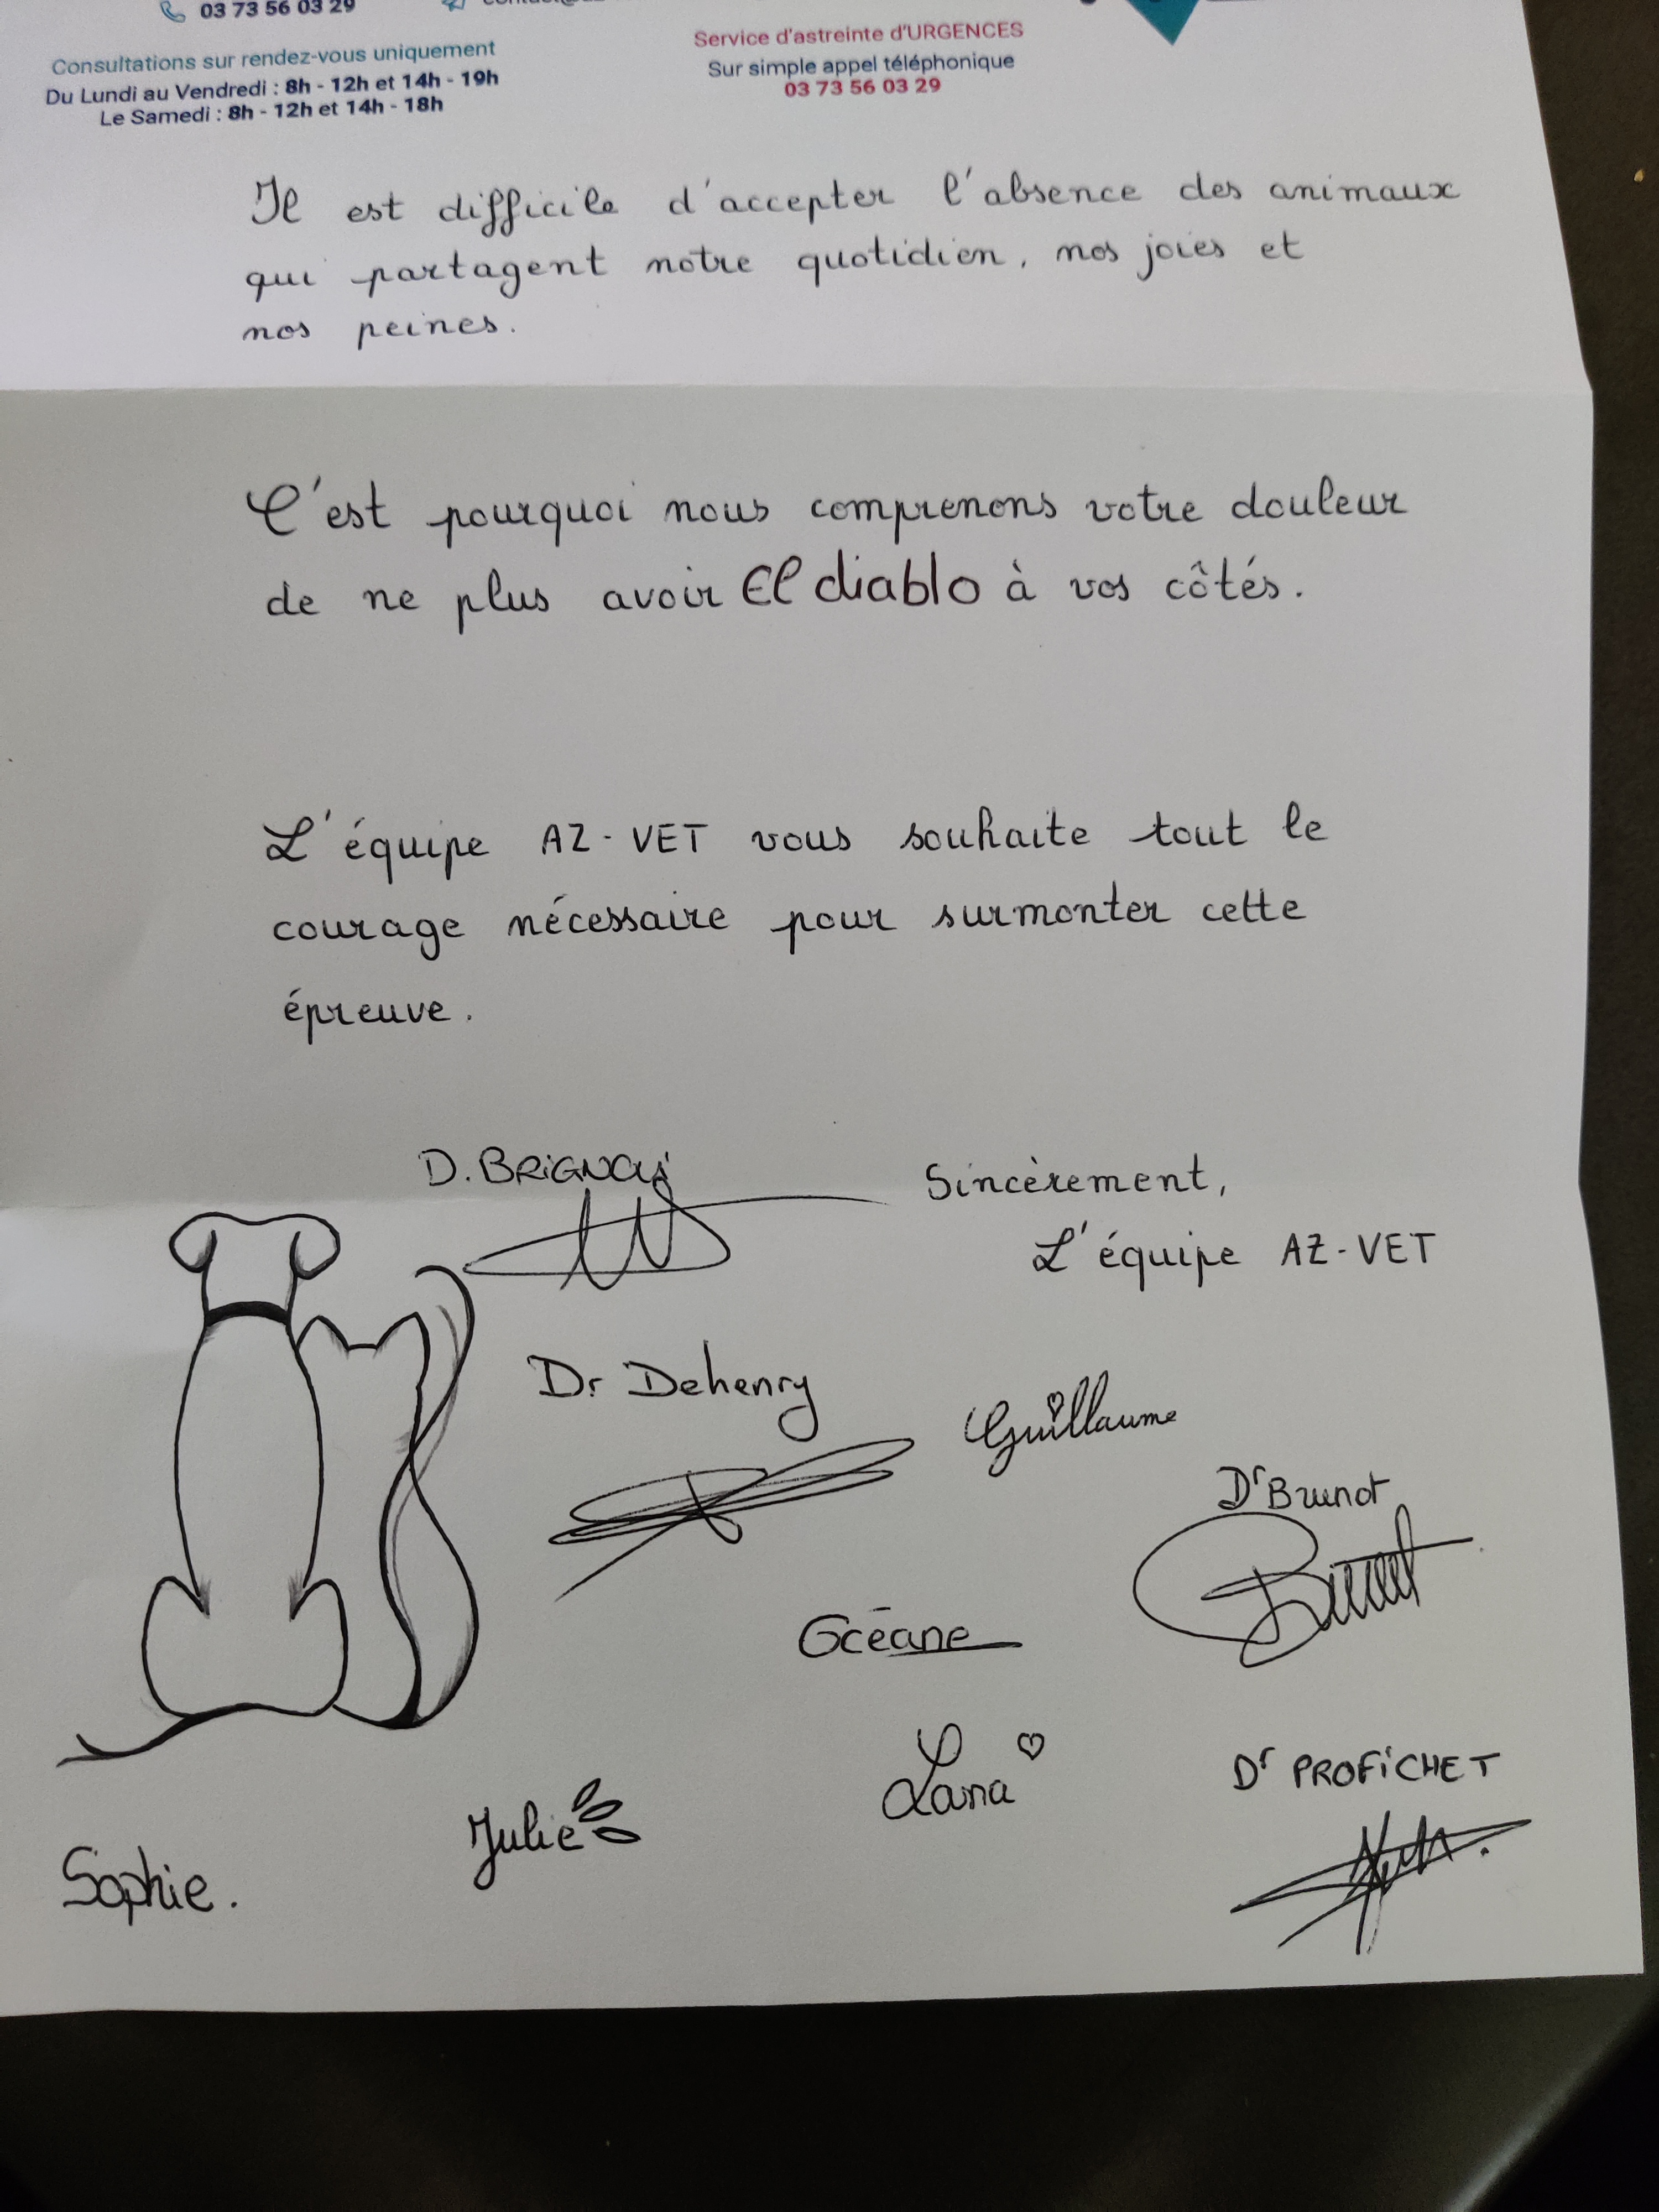 03 73 56 03 29
Consultations sur rendez-vous uniquement
Du Lundi au Vendredi : 8h - 12h et 14h - 19h
Le Samedi : 8h - 12h et 14h - 18h
Service d'astreinte d'URGENCES
Sur simple appel téléphonique
03 73 56 03 29
Il est difficile d'accepter l'absence des animaux
qui partagent notre quotidien, nos joies et
nos peines.
C'est pourquoi nous comprenons votre douleur
de ne plus avoir El diablo à vos côtés.
L'équipe AZ-VET vous souhaite tout le
courage nécessaire pour surmonter cette
épreuve.
Sincèrement,
L'équipe AZ-VET
D.
Dr Dehenry
Guillaume
Dr Brunot
Océane
Lana
Dr PROFiCHET
Julie
Sophie.